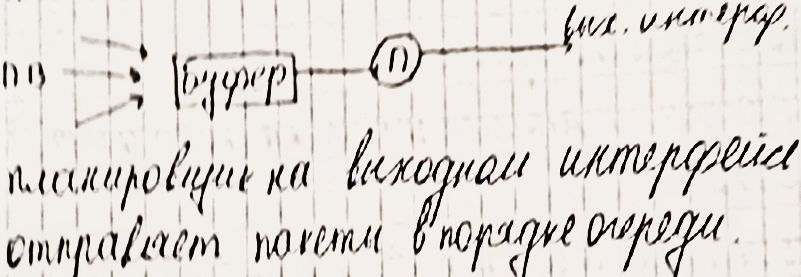 вых. интерф.
пп
буфер
П
планировщик на выходном интерфейсе
отправляет пакеты в порядке очереди.